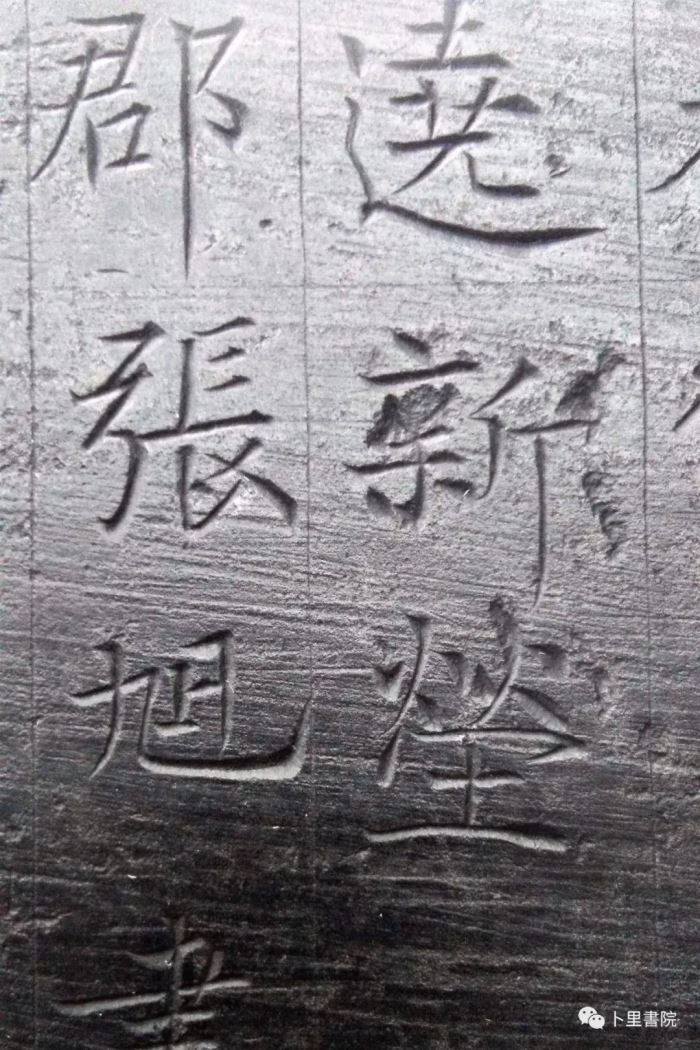 遶新塋
郡張旭書
卜里書院